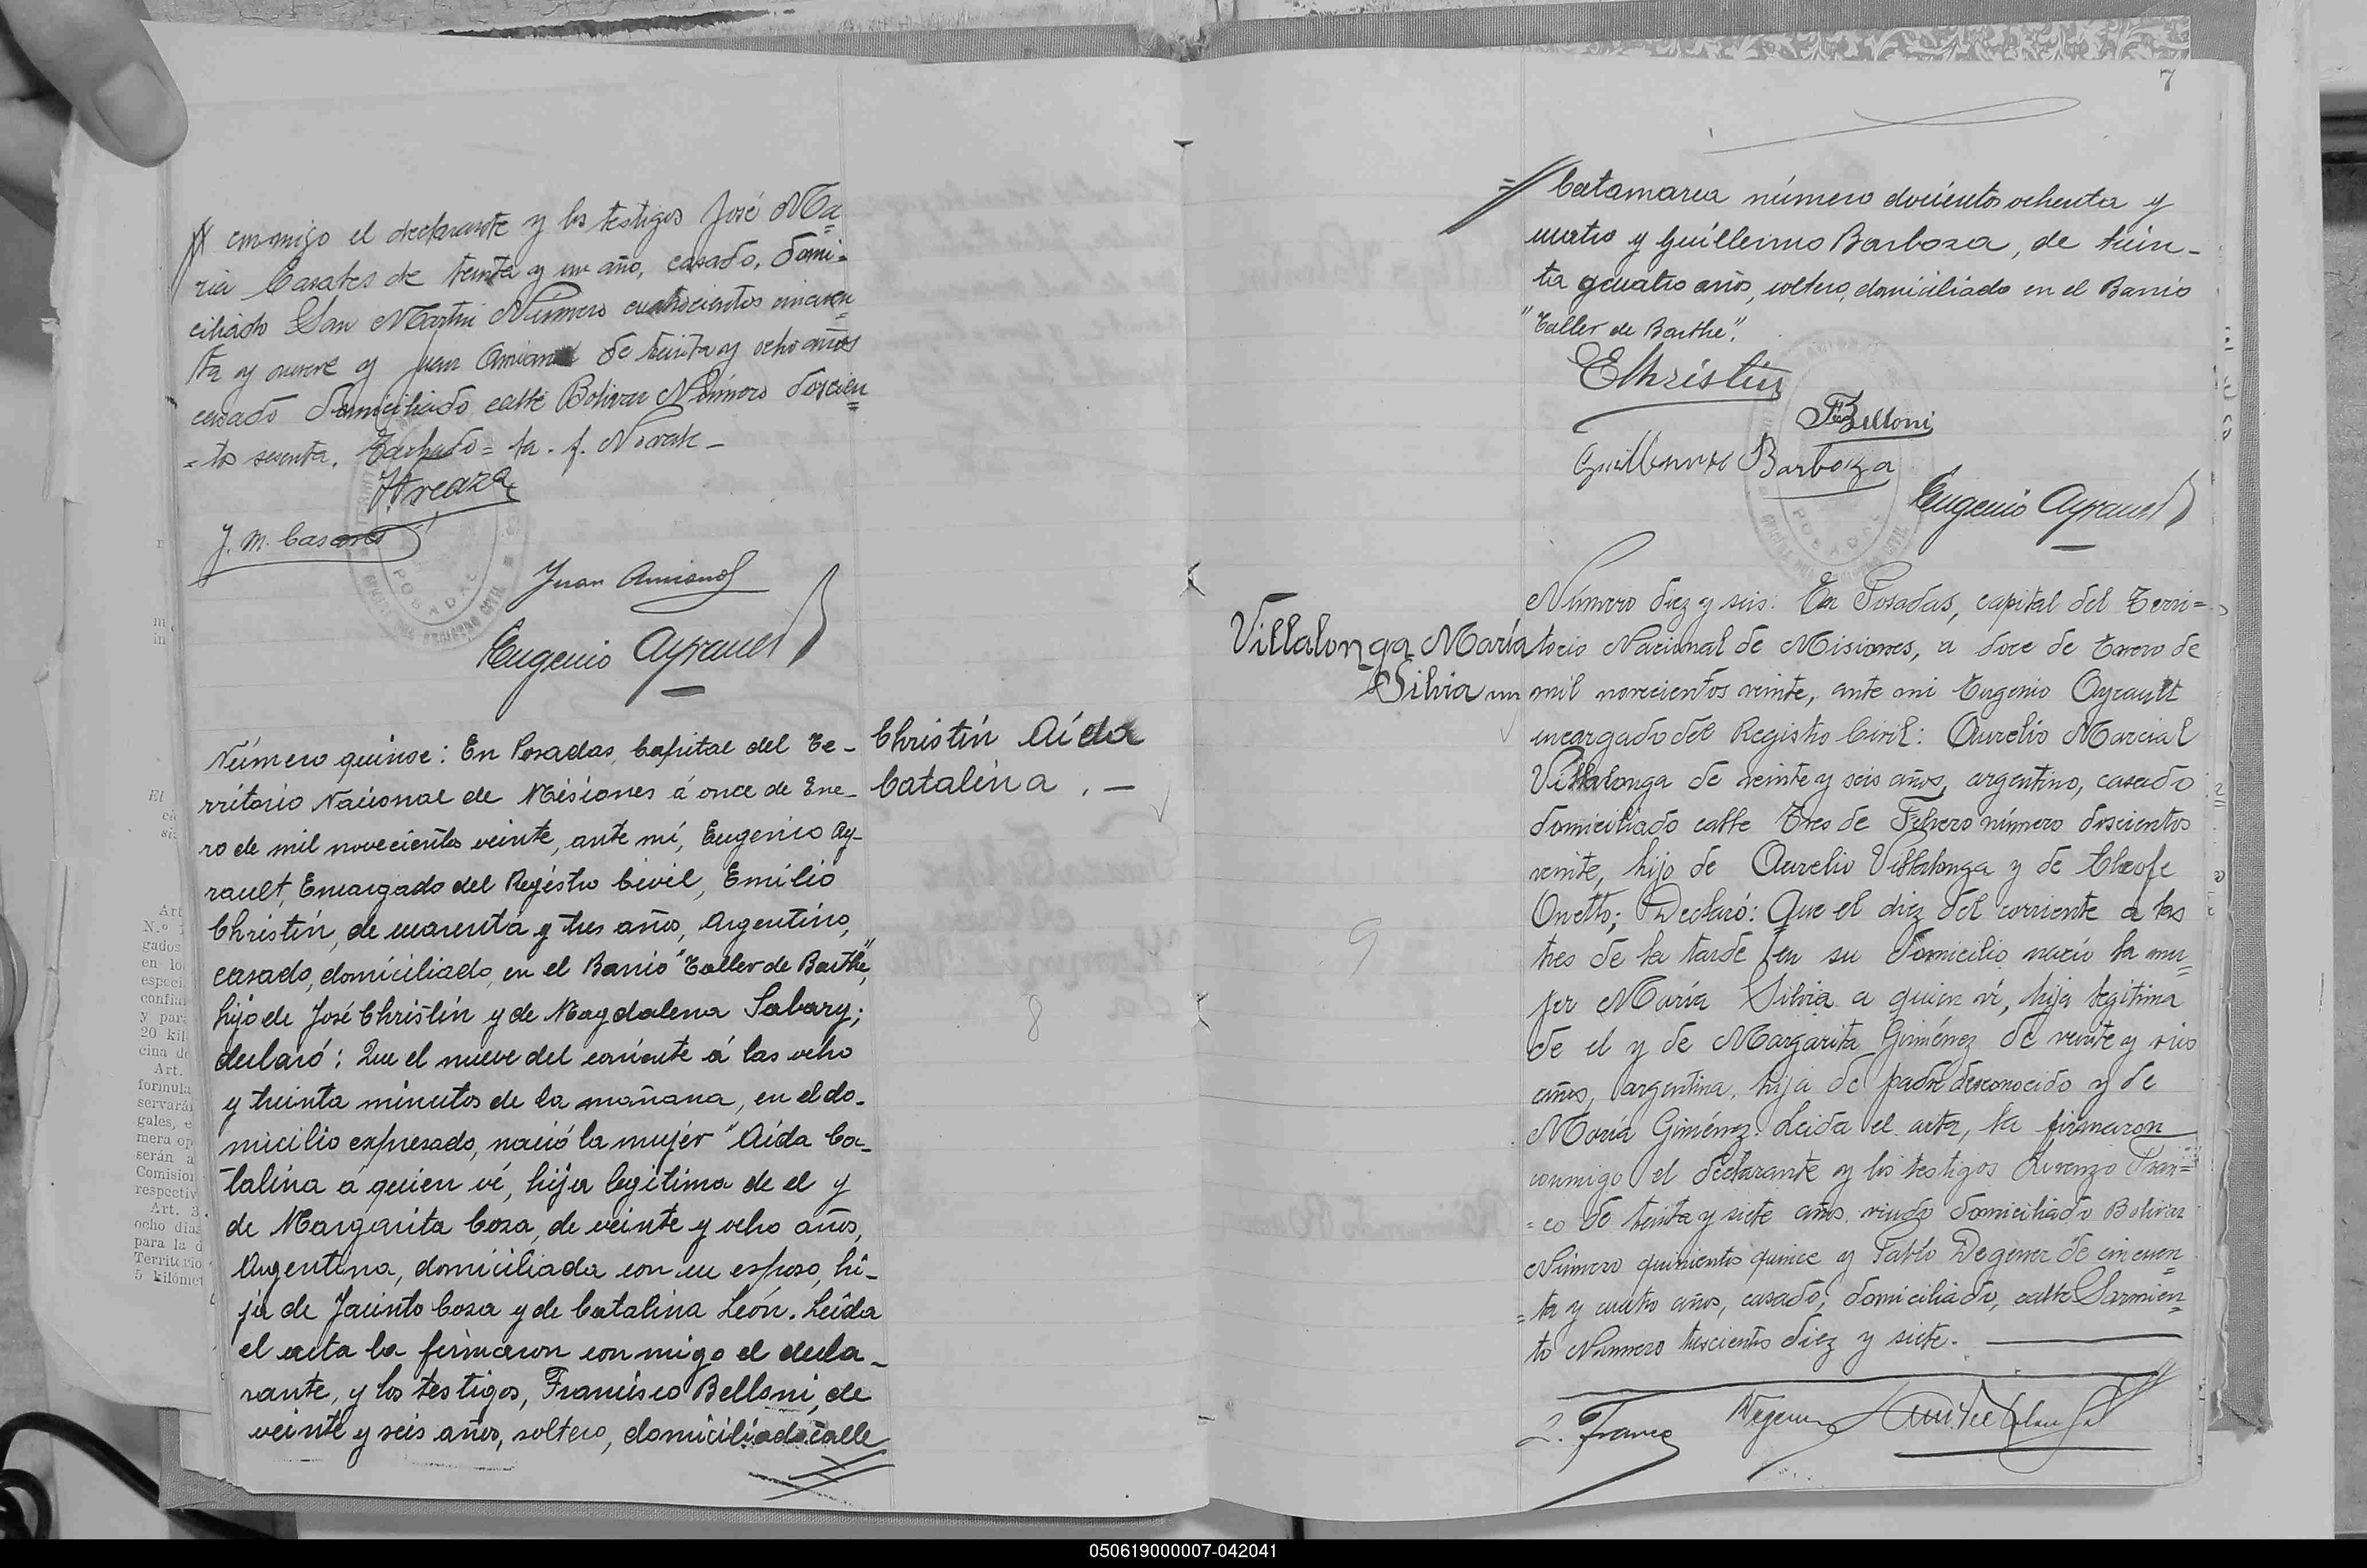 conmigo el declarante y los testigos José Ma=
ria Casares de treinta y un año, casado, domi=
ciliado San Martin Número cuatrocientos cincuen=
ta y nueve y Juan Amiano de treinta y ocho años
casado domiciliado calle Bolivar Número doscien=
=tos setenta. Tachado = ta. f. Novak -
J. M. Casares
Juan Amiano
Eugenio Ayrault
POSADAS
Número quince: En Posadas, Capital del Te-
rritorio Nacional de Misiones á once de Ene-
ro de mil novecientos veinte, ante mí, Eugenio Ay-
rault, Encargado del Registro Civil, Emilio
Christín, de cuarenta y tres años, Argentino,
casado, domiciliado, en el Barrio "Taller de Barthe",
hijo de José Christín y de Magdalena Sabary;
declaró: Que el nueve del corriente á las ocho
y treinta minutos de la mañana, en el do-
micilio expresado, nació la mujer "Aída Ca-
talina á quien vé, hija legitima de el y
de Margarita Coza, de veinte y ocho años,
Argentina, domiciliada con su esposo, hi-
ja de Jacinto Coza y de Catalina León. Leída
el acta la firmaron conmigo el decla-
rante, y los testigos, Francisco Belloni, de
veinte y seis años, soltero, domiciliado calle
Christín Aída
Catalina . -
8
7
Catamarca número docientos ochenta y
cuatro y Guillermo Barboza, de trein-
ta y cuatro años, soltero, domiciliado en el Barrio
"Taller de Barthe".
EChristin
F Belloni
Guillermo Barboza
Eugenio Ayrault
POSADAS
Villalonga María
Silvia
9
Número diez y seis: En Posadas, capital del Terri=
torio Nacional de Misiones, a doce de Enero de
mil novecientos veinte, ante mi Eugenio Ayrault
encargado del Registro Civil: Aurelio Marcial
Villalonga de veinte y seis años, argentino, casado
domiciliado calle Tres de Febrero número doscientos
veinte, hijo de Aurelio Villalonga y de Cleofe
Onetto; Declaró: Que el diez del corriente a las
tres de la tarde en su domicilio nació la mu=
jer María Silvia a quien vé, hija legitima
de el y de Margarita Giménez de veinte y seis
años, argentina, hija de padre desconocido y de
María Giménez. Leida el acta, la firmaron
conmigo el declarante y los testigos Lorenzo Fran=
=co de treinta y siete años viudo domiciliado Bolivar
Número quinientos quince y Pablo Degener de cincuen=
=ta y cuatro años, casado, domiciliado, calle Sarmien=
to Número trescientos diez y siete.
L. Franco
Degener
050619000007-042041